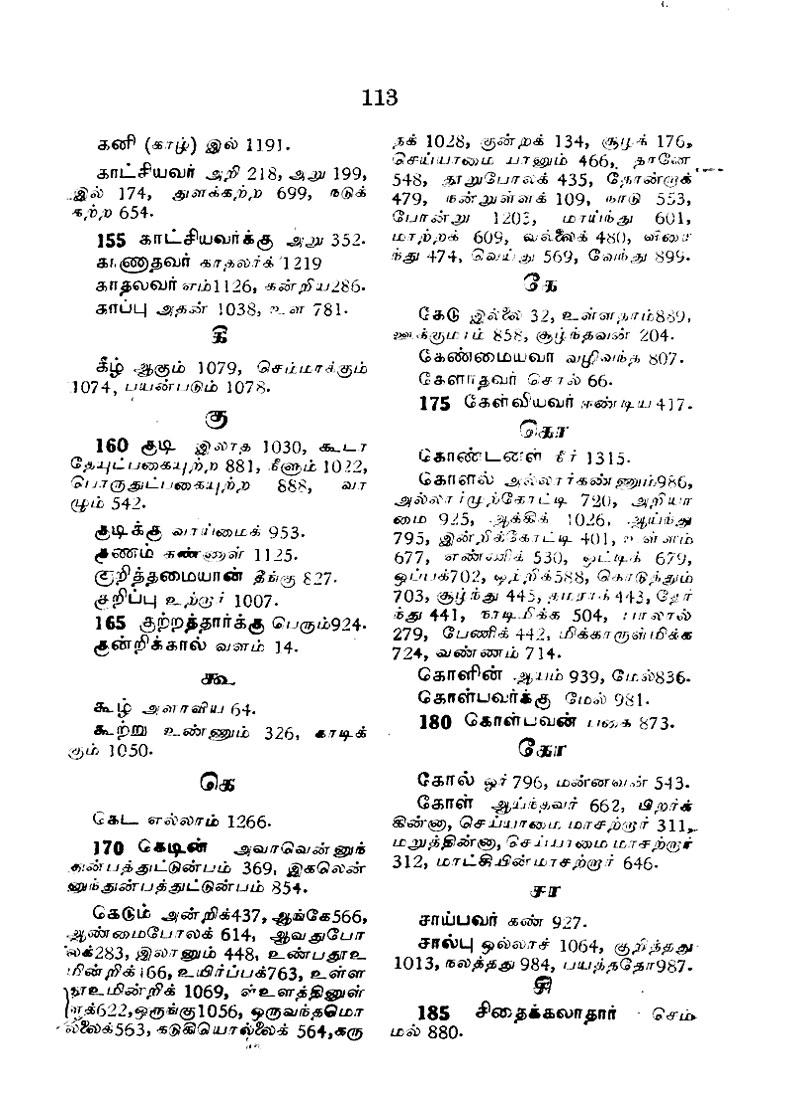 113
கனி (காழ்) இல் 1191.
காட்சியவர் அறி 218, அறு 199,
இல் 174, துளக்கற்ற 699, நடுக்
கற்ற 654.
155 காட்சியவர்க்கு அறு 352.
காணாதவர் காதலர்க் 1219
காதலவர் எம்1126, கன்றிய286.
காப்பு அதன் 1038, உள 781.
கீ
கீழ் ஆகும் 1079, செம்மாக்கும்
1074, பயன்படும் 1078.
கு
160 குடி இலாத 1030, கூடா
தேயுட்பகையுற்ற 881, நீளும் 1022,
பொருதுட்பகையுற்ற 888, வா
ழும் 542.
குடிக்கு வாய்மைக் 953.
குணம் கண்ணுள் 1125.
குறித்தமையான் தீங்கு 827.
குறிப்பு உற்றார் 1007.
165 குற்றத்தார்க்கு பெரும்924.
குன்றிக்கால் வளம் 14.
கூ
கூழ் அளாவிய 64.
கூற்று உண்ணும் 326, காடிக்
கும் 1050.
கெ
கெட எல்லாம் 1266.
170 கெடின் அவாவென்னுந்
துன்பத்துட்டுன்பம் 369, இகலென்
னுந்துன்பத்துட்டுன்பம் 854.
கெடும் அன்றிக்437, ஆங்கே566,
ஆண்மைபோலக் 614, ஆவதுபோ
லக்283, இலானும் 448, உண்பதூஉ
மின்றிக்166, உயிர்ப்பக்763, உள்ள
தூஉமின்றிக் 1069, உளத்தினுள்
ளக்622,ஒருங்கு1056, ஒருவந்தமொ
ல்லைக்563, கடுகியொல்லைக் 564,கரு
தக் 1028, குன்றக் 134, சூழக் 176,
செய்யாமை யானும் 466, தானே
548, தூறுபோலக் 435, தோன்றாக்
479, நன்றுள்ளக் 109, நாடு 553,
போன்று 1203, மாய்ந்து 601,
மாற்றக் 609, வல்லைக் 480, விரை
ந்து 474, வெய்து 569, வேந்து 899.
கே
கேடு இல்லை 32, உள்ளநாம்889,
ஊக்குமாம் 858, சூழ்ந்தவன் 204.
கேண்மையவா வழிவந்த 807.
கேளாதவர் சொல் 66.
175 கேள்வியவர் ஈண்டிய 417.
கொ
கொண்டனள் நீர் 1315.
கொளல் அல்லார்கண்ணும்986,
அல்லார்முற்கோட்டி 720, அறியா
மை 925, ஆக்கிக் 1026, ஆய்ந்து
795, இன்றிக்கோட்டி 401, உள்ளம்
677, எண்ணிக் 530, ஒட்டிக் 679,
ஒப்பக்702, ஒற்றிக்588, கொடுத்தும்
703, சூழ்ந்து 445, தமராக்443, தேர்
ந்து 441, நாடிமிக்க 504, பாலால்
279, பேணிக் 442, மிக்காருள்மிக்க
724, வண்ணம் 714.
கொளின் ஆயம் 939, மேல்836.
கொள்பவர்க்கு மேல் 981.
180 கொள்பவன் பகை 873.
கோ
கோல் ஓர்796, மன்னவன் 543.
கோள் ஆய்ந்தவர் 662, பிறர்க்
கின்னா, செய்யாமை மாசற்றார் 311,
மறுத்தின்னா, செய்யாமை மாசற்றார்
312, மாட்சியின்மாசற்றார் 646.
சா
சாய்பவர் கண் 927.
சால்பு ஒல்லாச் 1064, குறித்தது
1013, நலத்தது 984, பயத்ததோ987.
சி
185 சிதைக்கலாதார் செம்
மல் 880.